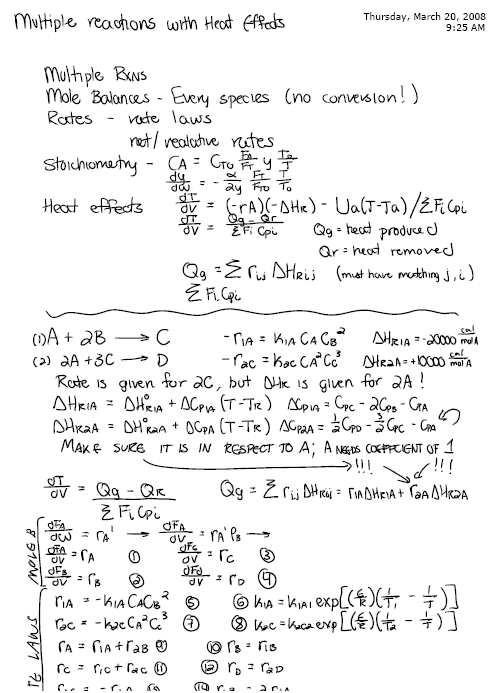 Multiple reactions with Heat Effects
Thursday, March 20, 2008
9:25 AM
Multiple Rxns
Mole Balances - Every species (no conversion!)
Rates - rate laws
net/realative rates
Stoichiometry - CA = CTo FA/FT y To/T
dy/dW = - α/2y FT/FTo T/To
Heat effects dT/dV = (-rA)(-ΔHR) - Ua(T-Ta) / ΣFiCpi
dT/dV = Qg - Qr / ΣFiCpi Qg = heat produced
Qr = heat removed
Qg = Σ rij ΔHRij (must have matching j, i)
ΣFiCpi
(1) A + 2B → C -r1A = k1A CA CB² ΔHR1A = -20000 cal/mol A
(2) 2A + 3C → D -r2C = k2C CA² CC³ ΔHR2A = +10000 cal/mol A
Rate is given for 2C, but ΔHR is given for 2A!
ΔHR1A = ΔH°R1A + ΔCP1A (T-TR) ΔCP1A = CPC - 2CPB - CPA
ΔHR2A = ΔH°R2A + ΔCPA (T-TR) ΔCP2A = 1/2 CPD - 3/2 CPC - CPA
MAKE SURE IT IS IN RESPECT TO A; A NEEDS COEFFICIENT OF 1
!!! !!!
dT/dV = Qg - QR / ΣFiCpi Qg = Σ rij ΔHRij = r1A ΔHR1A + r2A ΔHR2A
MOLE B
dFA/dW = rA' → dFA/dV = rA' ρB →
dFA/dV = rA ① dFC/dV = rC ③
dFB/dV = rB ② dFD/dV = rD ④
r1A = -k1A CA CB² ⑤ ⑥ k1A = k1A1 exp[(E/R)(1/T1 - 1/T)]
r2C = -k2C CA² CC³ ⑦ ⑧ k2C = k2C2 exp[(E/R)(1/T2 - 1/T)]
rA = r1A + r2B ⑨ ⑩ rB = r1B
rC = r1C + r2C ⑪ ⑫ rD = r2D